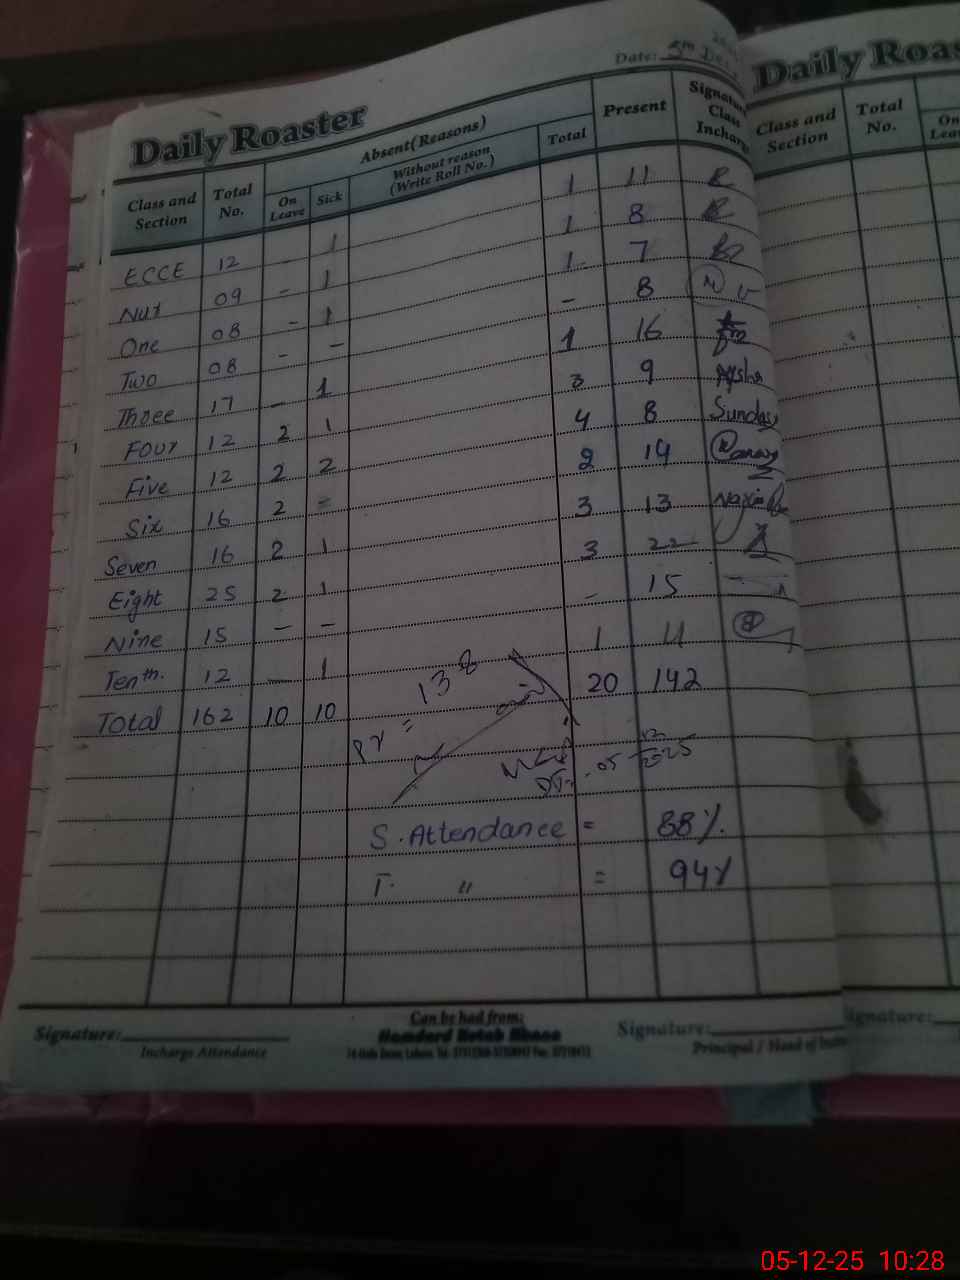 Date: 5th Dec
Daily Roaster
Class and Section Total No. Absent (Reasons) Present Signature Class Incharge
On Leave Sick Without reason (Write Roll No.) Total
ECCE 12 - 1 1 11
Nur 09 - 1 1 8
One 08 - 1 1 7
Two 08 - - - 8
Three 17 - 1 1 16
Four 12 2 1 3 9 Aysha
Five 12 2 2 4 8 Sundas
Six 16 2 = 2 14
Seven 16 2 1 3 13
Eight 25 2 1 3 22
Nine 15 - - - 15
Tenth. 12 - 1 1 11
Total 162 10 10 20 142
= 138
S. Attendance = 88%.
T. " = 94%
Signature:
Incharge Attendance
Can be had from:
Hamdard Kutab Khana
Signature:
Principal / Head of
Daily Roas
Class and Section Total No. On Leave
ignature:
05-12-25 10:28